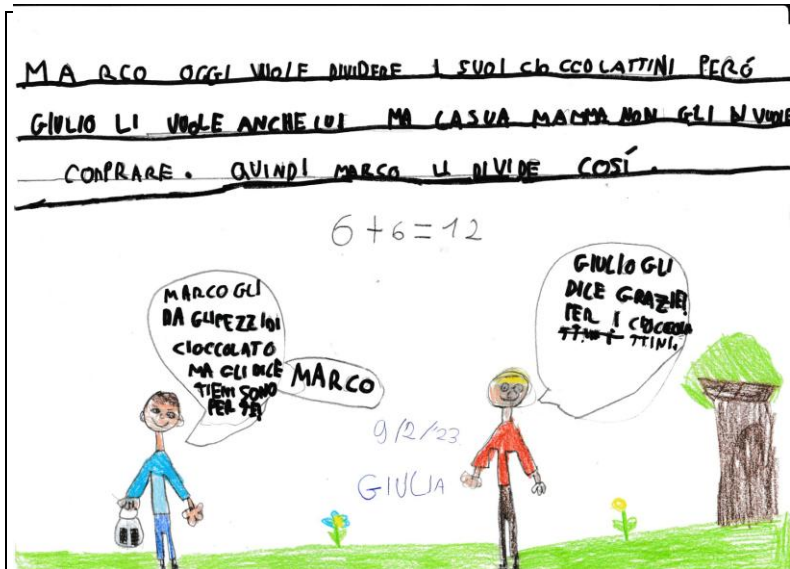 MARCO OGGI VUOLE DIVIDERE I SUOI CIOCCOLATTINI PERÓ
GIULIO LI VUOLE ANCHE LUI MA LA SUA MAMMA NON GLI VUOLE
COMPRARE. QUINDI MARCO LI DIVIDE COSÍ.
6+6=12
MARCO GLI
DA GLI PEZZI DI
CIOCCOLATO
MA GLI DICE
TIENI SONO
PER TE!
MARCO
GIULIO GLI
DICE GRAZIE!
PER I CIOCCOLA
TTINI.
9/2/23
GIULIA